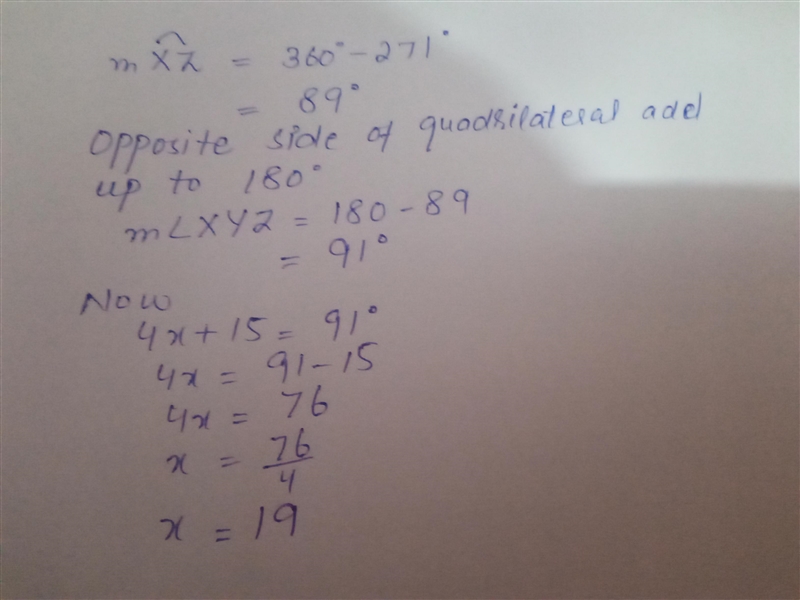 m XZ = 360° - 271°
= 89°
Opposite side of quadrilateral add
up to 180°
m∠XYZ = 180 - 89
= 91°
Now
4x + 15 = 91°
4x = 91 - 15
4x = 76
x = 76/4
x = 19